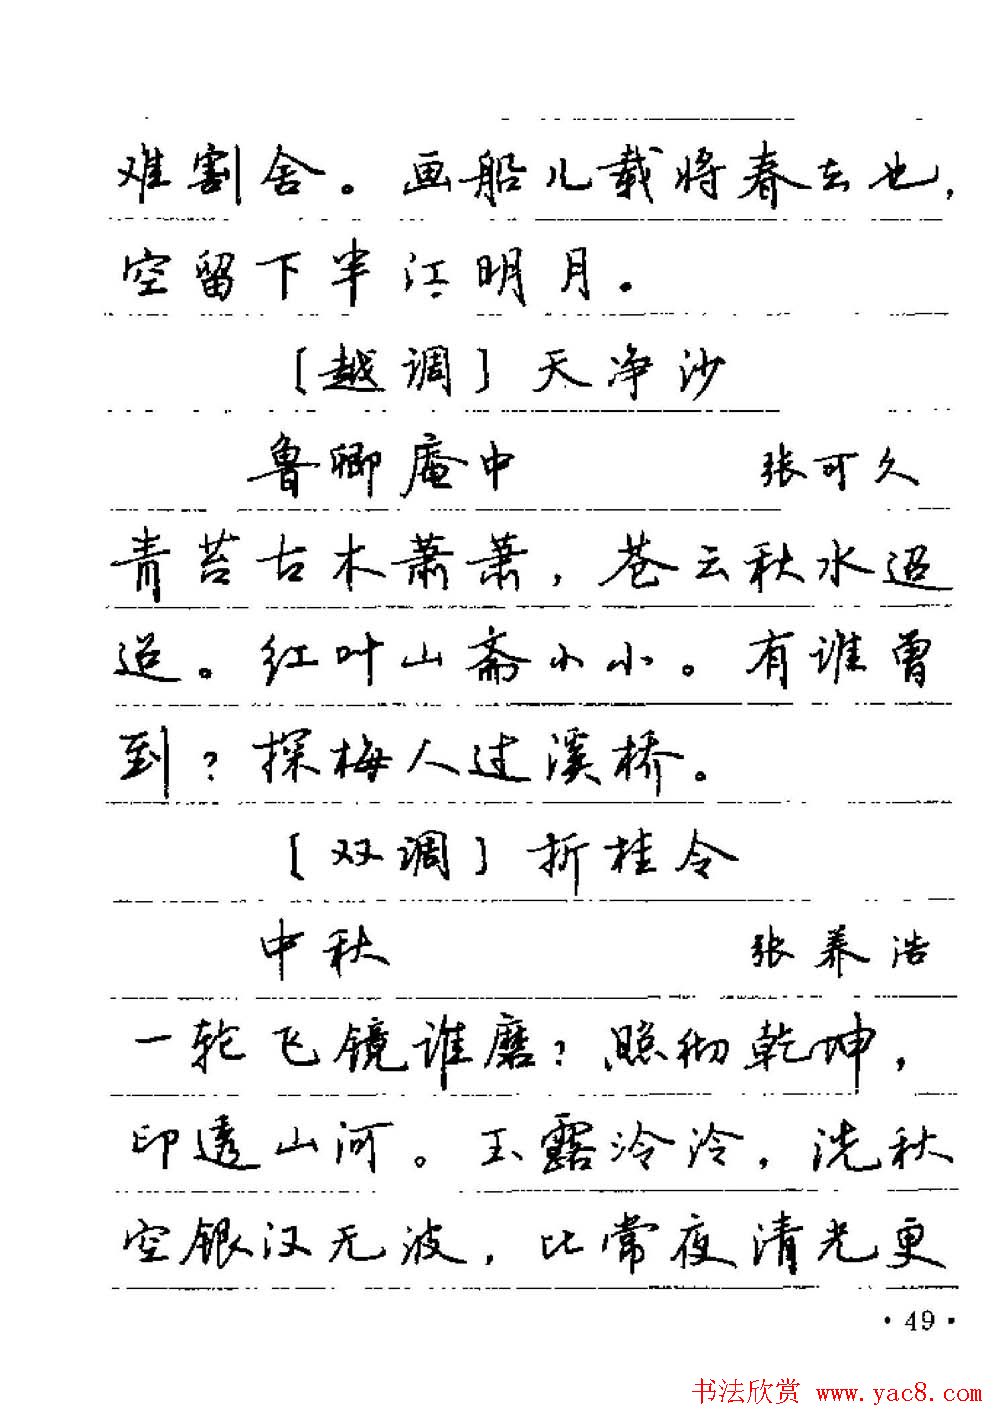 难割舍。画船儿载将春去也，
空留下半江明月。
［越调］天净沙
鲁卿庵中 张可久
青苔古木萧萧，苍云秋水迢
迢。红叶山斋小小。有谁曾
到？探梅人过溪桥。
［双调］折桂令
中秋 张养浩
一轮飞镜谁磨？照彻乾坤，
印透山河。玉露泠泠，洗秋
空银汉无波，比常夜清光更
·49·
书法欣赏 www.yac8.com